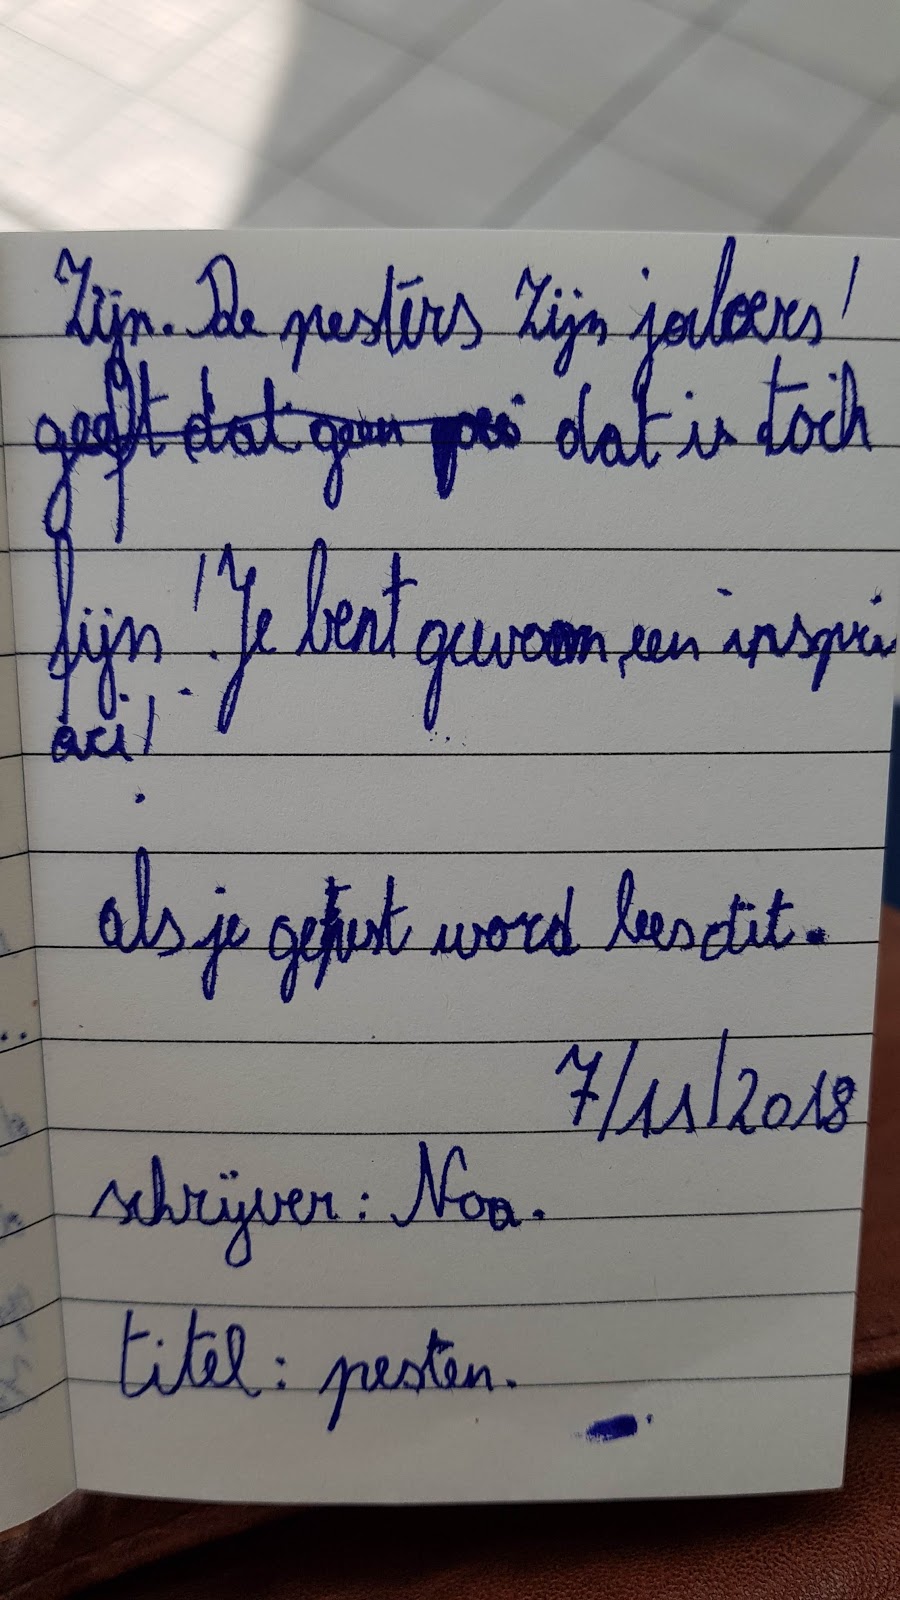 Zijn. De pesters zijn jaloers!
geeft dat geen dat is toch
fijn! Je bent gewoon een inspri
aci!
als je gepest word lees dit.
7/11/2018
schrijver: Noa.
titel: pesten.